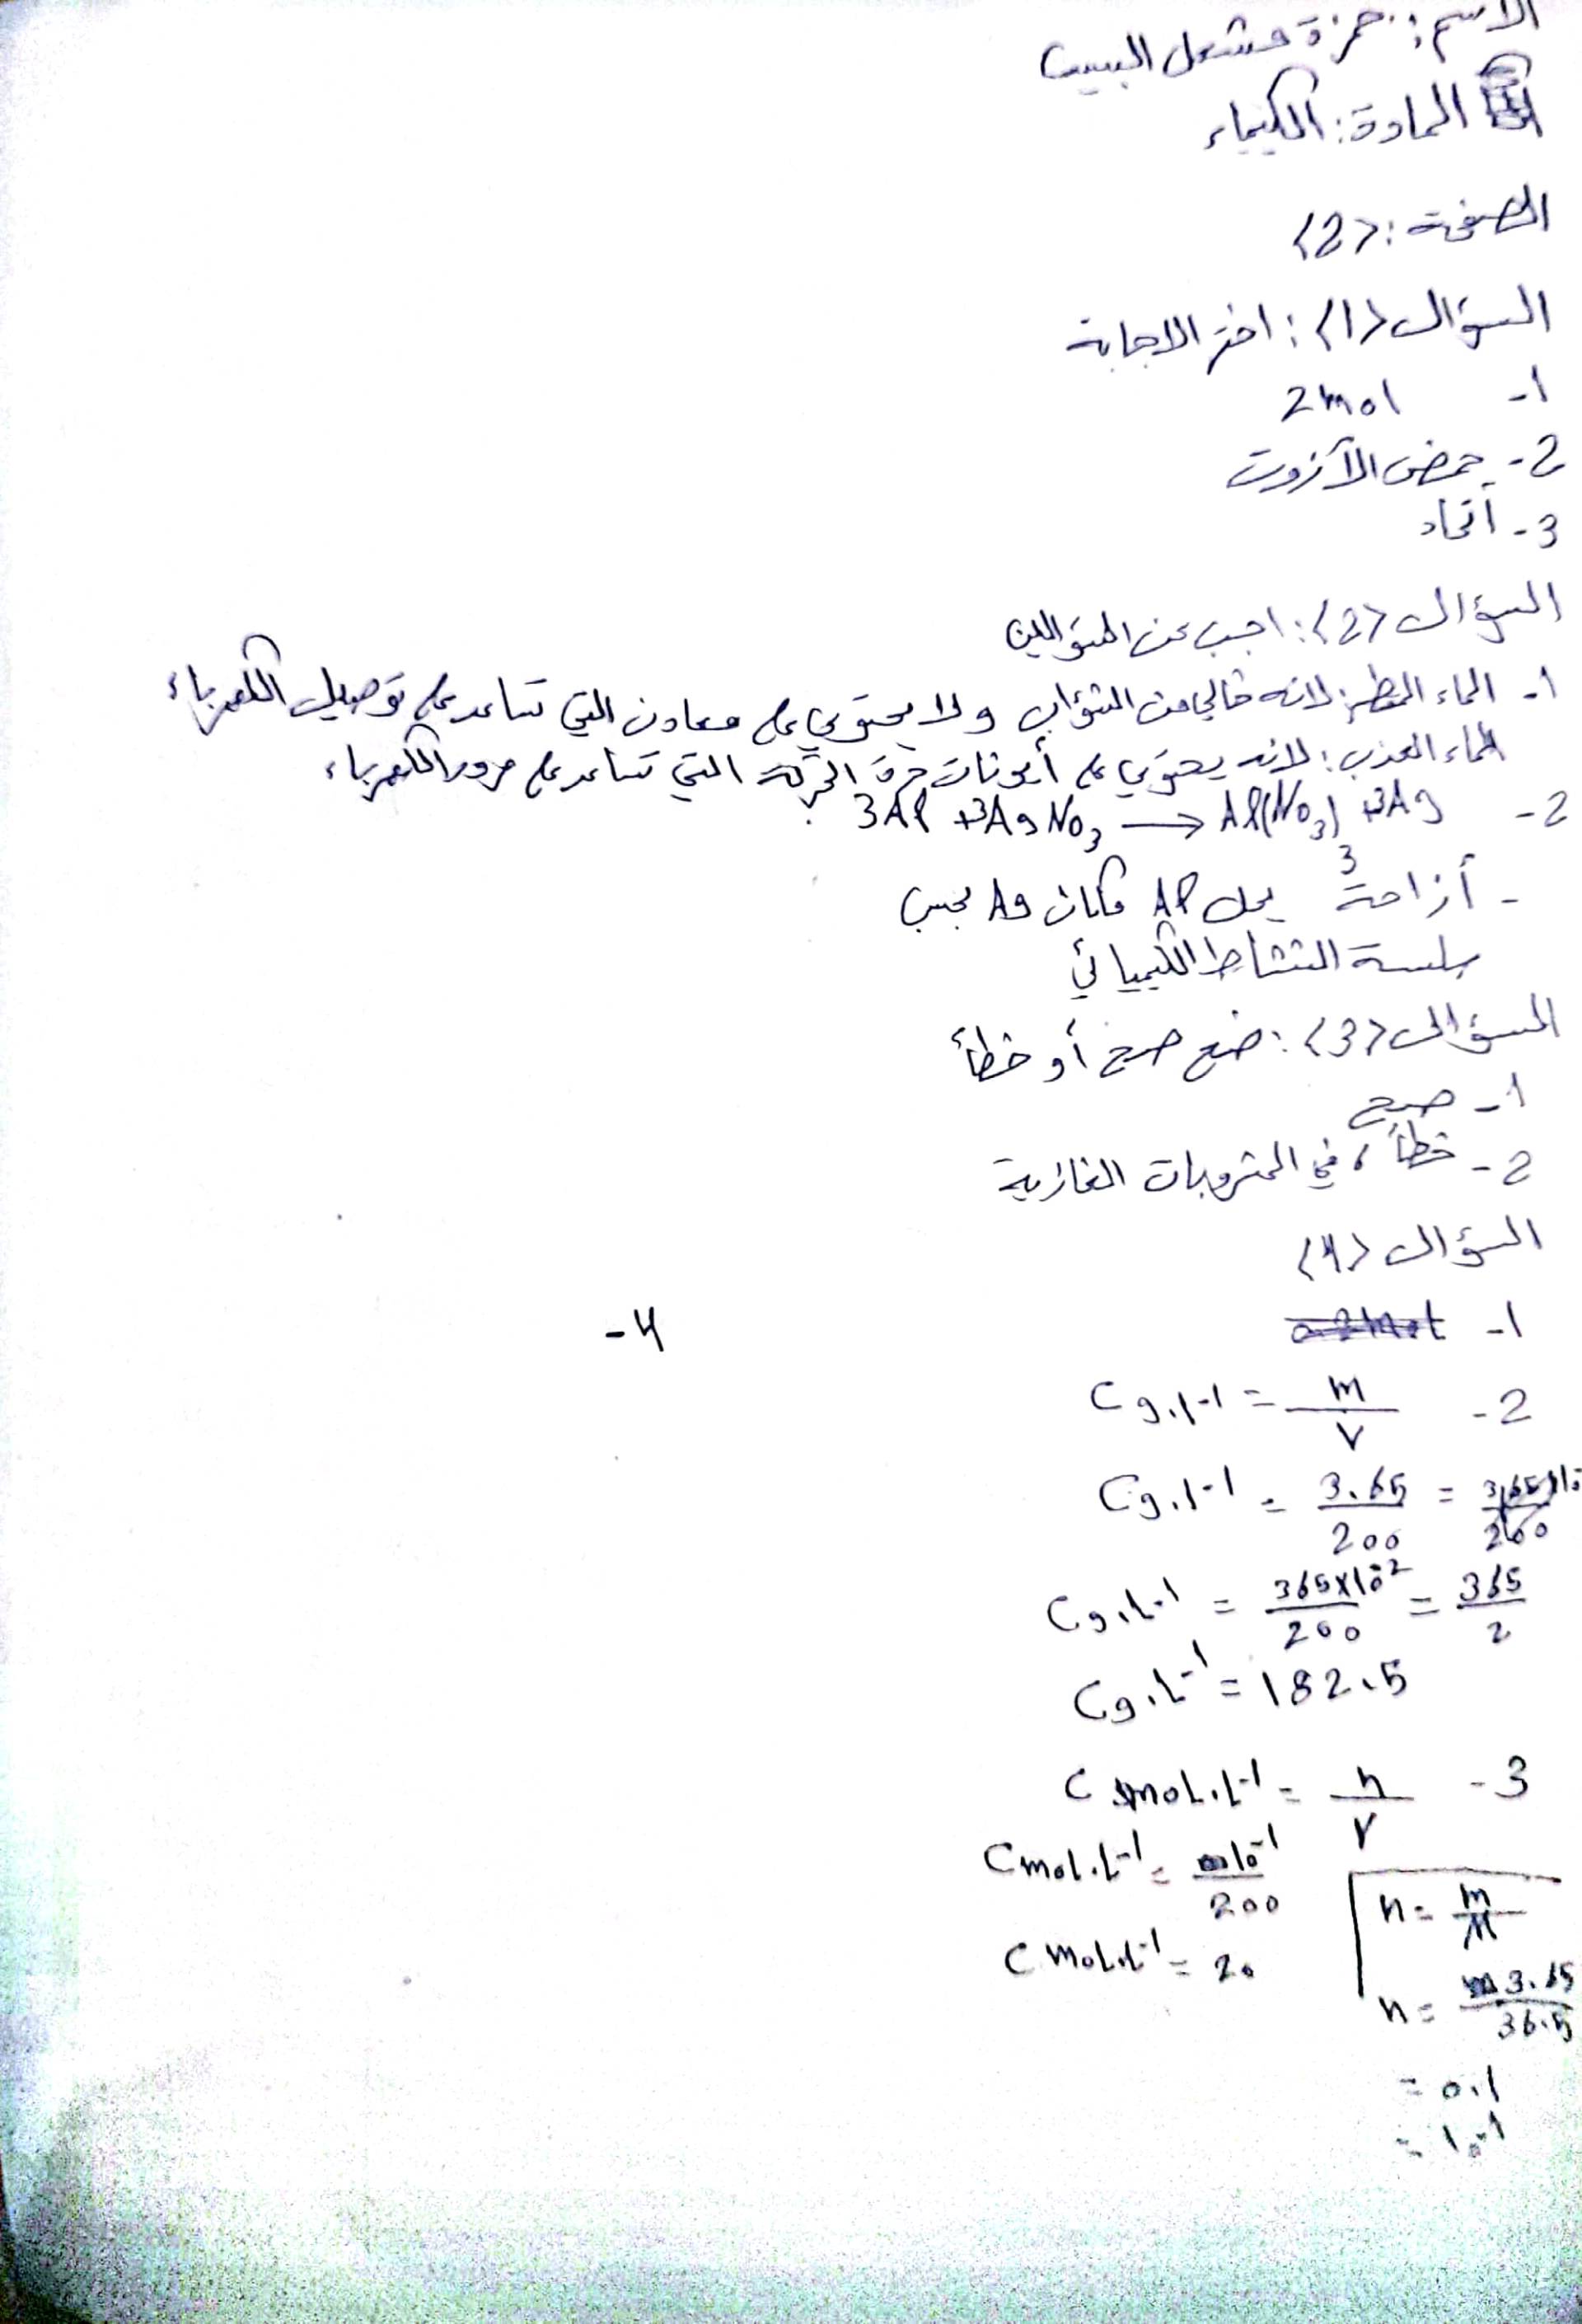 الاسم: حمزة مشعل
المادة: الكيمياء
الصفحة: <2>
السؤال <1>: اختر الاجابة
1- 2mol
2- حمض الآزوت
3- أتحاد
السؤال <2>: اجب عن السؤالين
1- الماء المقطر: لانه خالي من الشؤاب ولا يحتوي على معادن التي تساعد على توصيل الكهرباء
الماء العذب: لانه يحتوي على أيونات حرة الحركة التي تساعد على مرور الكهرباء
2- 3Al +3AgNO3 → Al(NO3)3 +3Ag
- أزاحة يحل Al مكان Ag بحسب
سلسة النشاط الكيميائي
السؤال <3>: ضع صح أو خطأ
1- صح
2- خطأ، في المشروبات الغازية
السؤال <4>
1-
4-
2- Cg.l-1 = m/V
Cg.l-1 = 3.65/200 =
Cg.L-1 = 365x10-2/200 = 365/2
Cg.L-1 = 182.5
3- Cmol.L-1 = n/V
Cmol.L-1 = 10-1/200
Cmol.L-1 = 20
n = m/M
n = 3.65/36.5
= 0.1
= 10-1